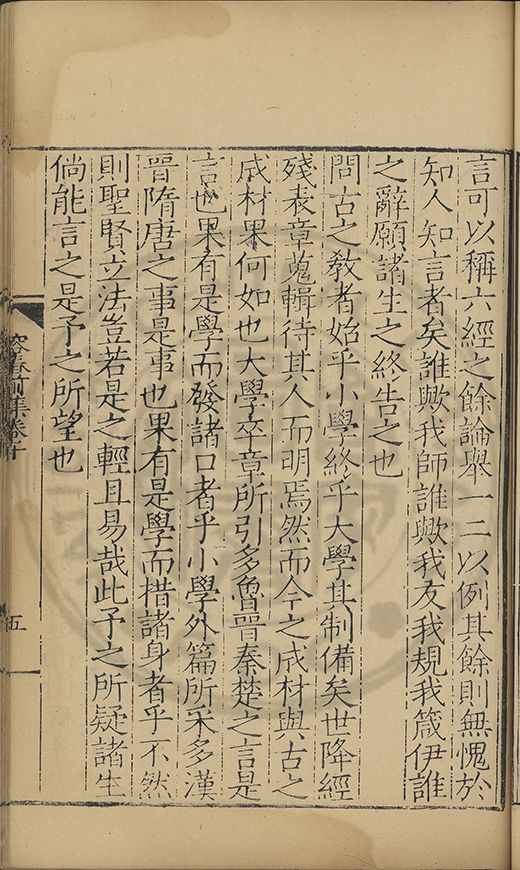 言可以稱六經之餘論舉一二以例其餘則無愧於
知人知言者矣誰歟我師誰歟我友我規我箴伊誰
之辭願諸生之終告之也
問古之教者始乎小學終乎大學其制備矣世降經
殘表章蒐輯待其人而明焉然而今之成材與古之
成材果何如也大學卒章所引多魯晋秦楚之言是
言也果有是學而發諸口者乎小學外篇所采多漢
晋隋唐之事是事也果有是學而措諸身者乎不然
則聖賢立法豈若是之輕且易哉此予之所疑諸生
倘能言之是予之所望也
容春前集卷十
五